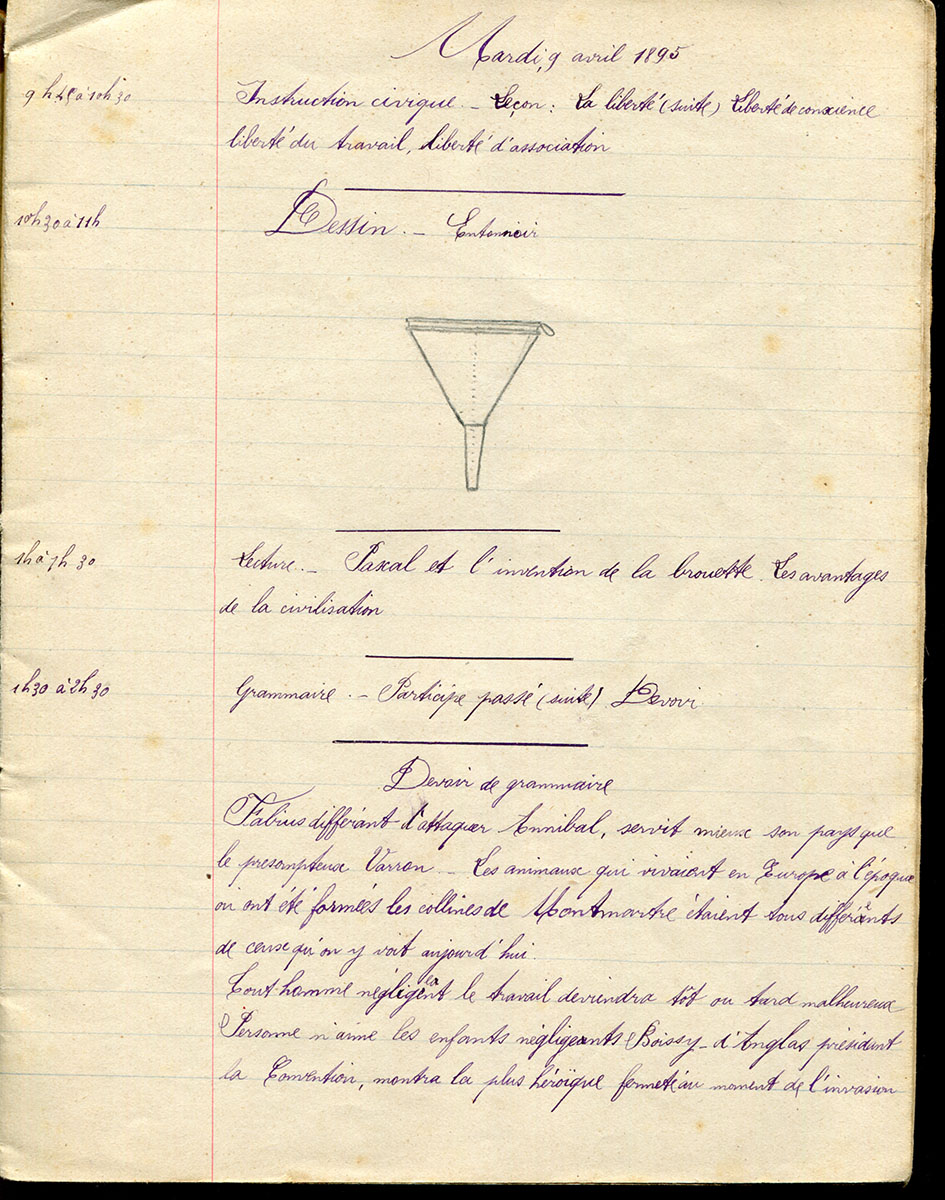 Mardi, 9 avril 1895
9 h 45 à 10h 30
Instruction civique. - Leçon : La liberté (suite) Liberté de conscience
liberté du travail, liberté d'association
10h 30 à 11h
Dessin. - Entonnoir
1h à 1h 30
Lecture. - Pascal et l'invention de la brouette. Les avantages
de la civilisation
1h30 à 2h 30
Grammaire. - Participe passé (suite) Devoir
Devoir de grammaire
Fabius différant d'attaquer Annibal, servit mieux son pays que
le presompteux Varron. - Les animaux qui vivaient en Europe à l'époque
où ont été formées les collines de Montmartre étaient tous différents
de ceux qu'on y voit aujourd'hui.
Tout homme négligeant le travail deviendra tôt ou tard malheureux
Personne n'aime les enfants négligeants Boissy-d'Anglas présidant
la Convention, montra la plus héroïque fermeté au moment de l'invasion